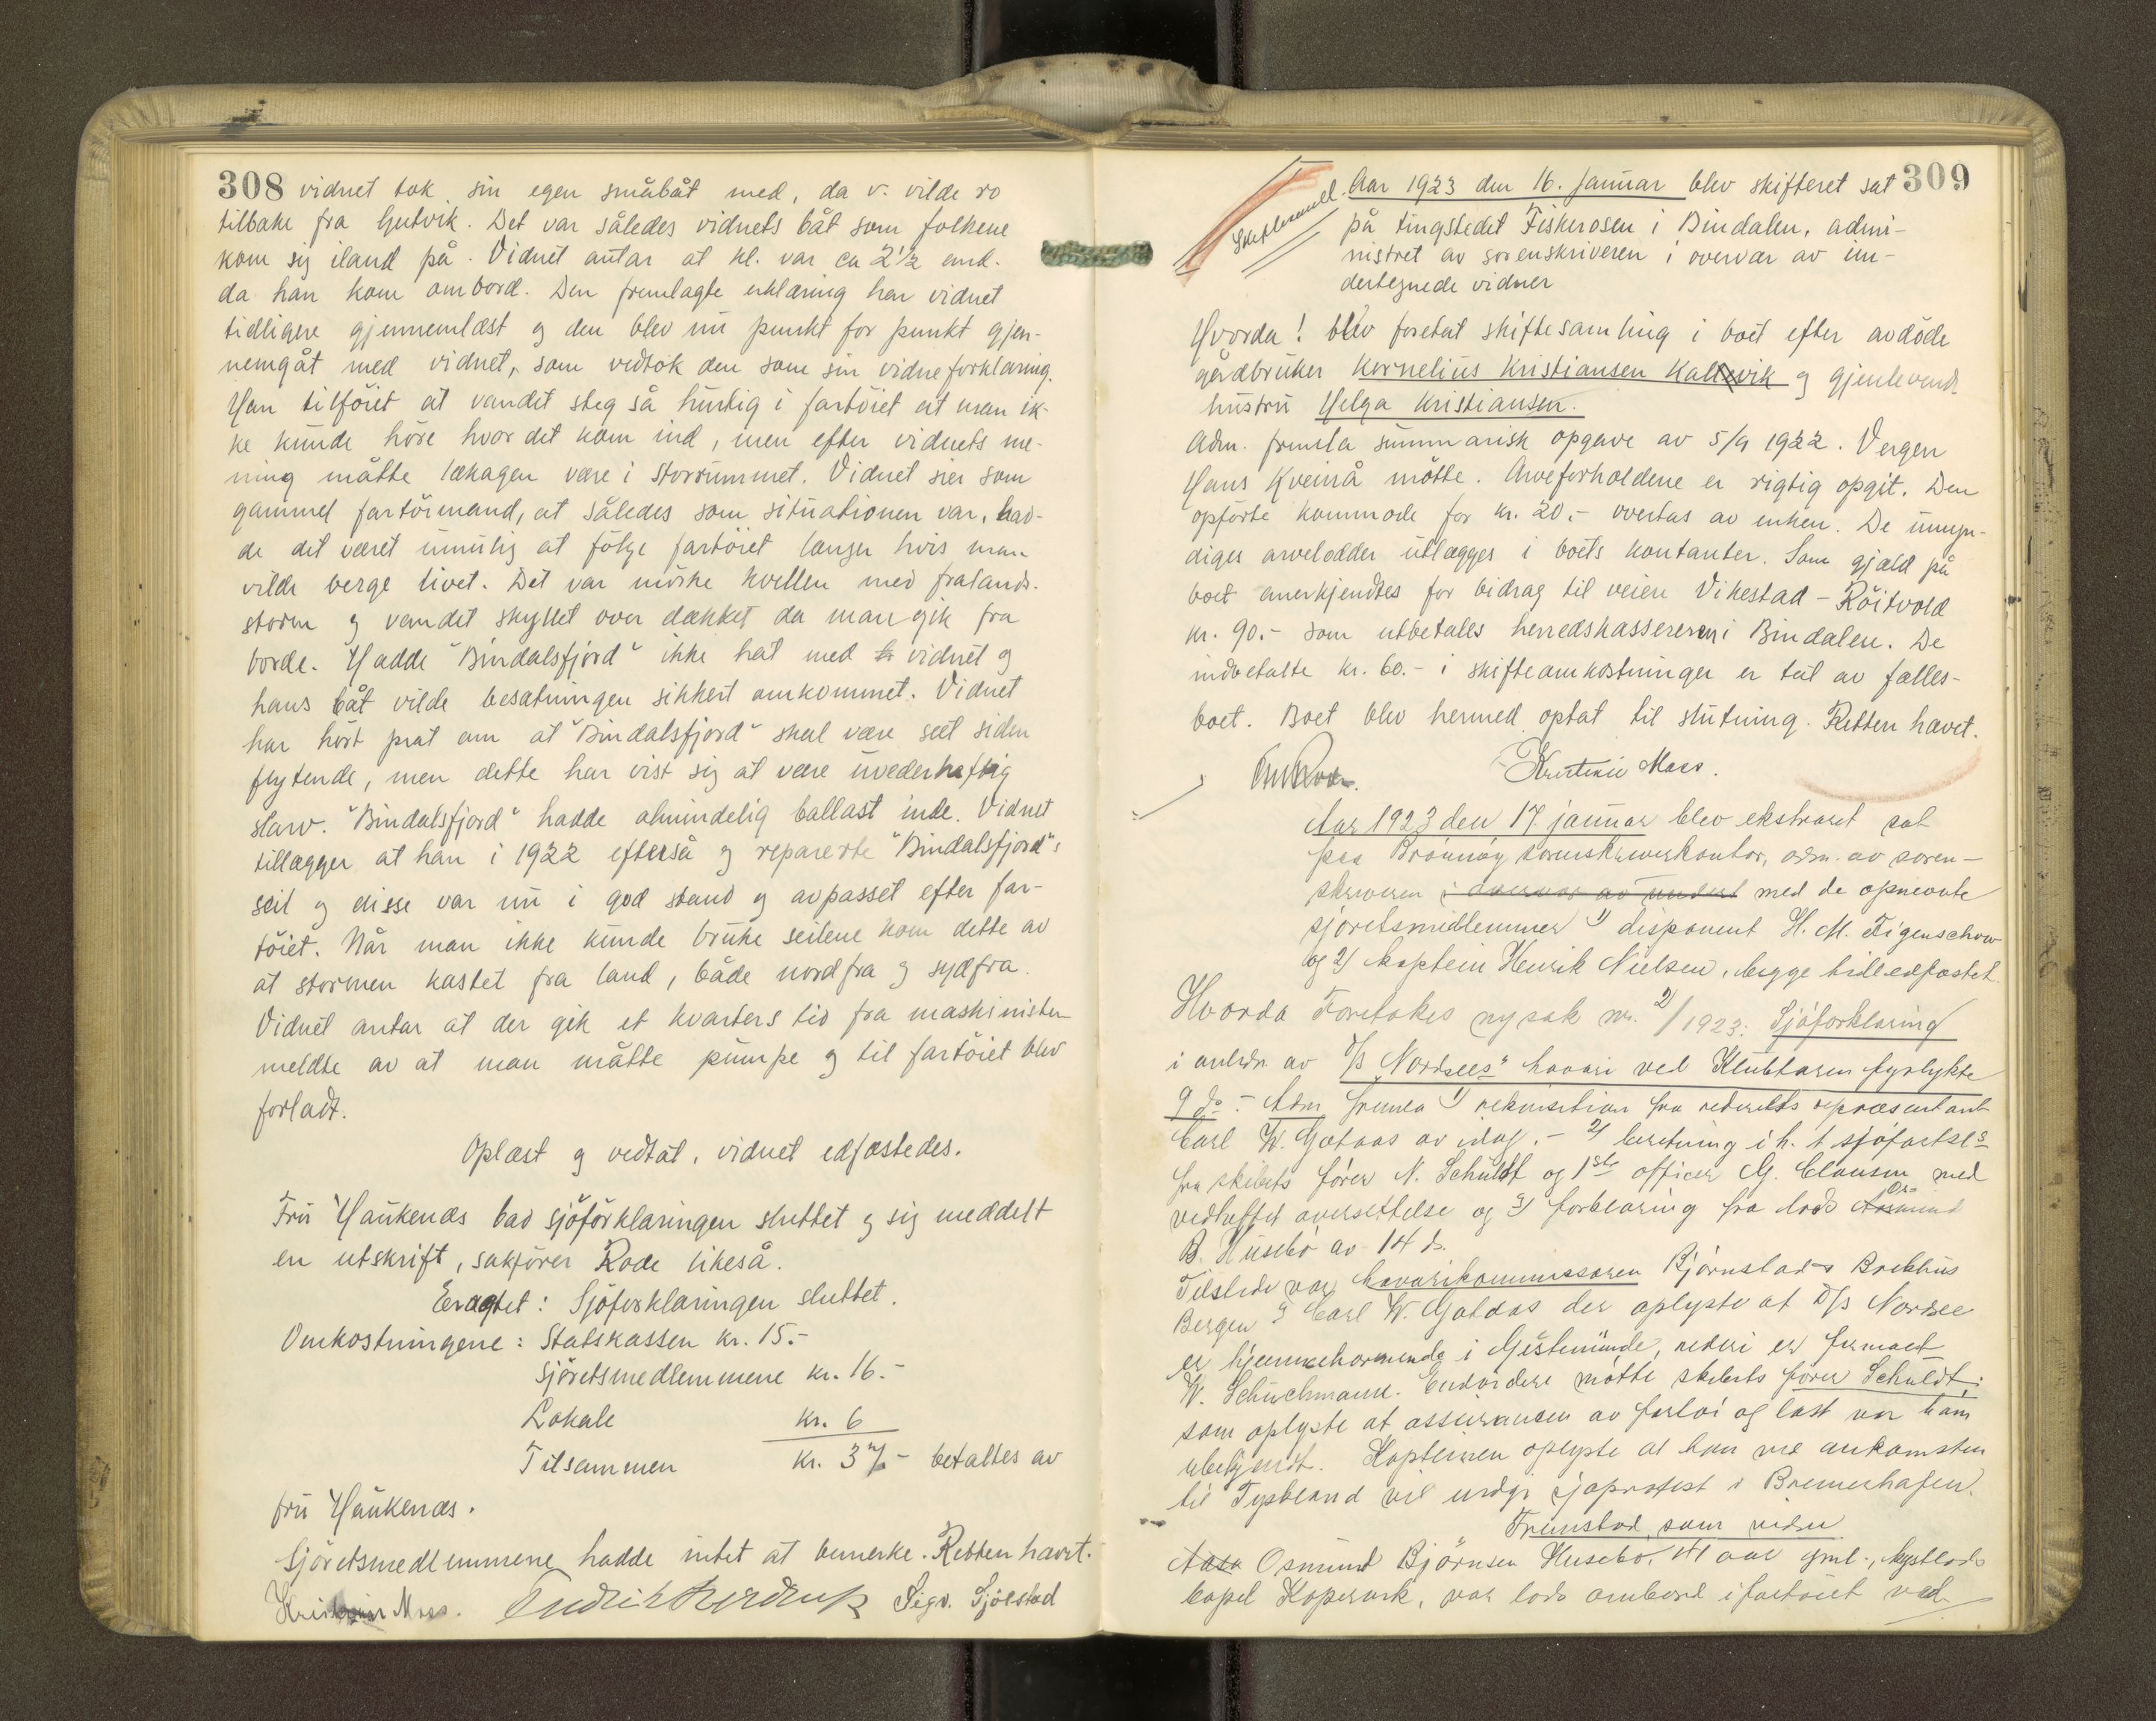 308 vidnet tok sin egen småbåt med, da v. vilde ro
tilbake fra Gutvik. Det var således vidnets båt som folkene
kom sig iland på. Vidnet antar at kl. var ca 2½ emd.
da han kom ombord. Den fremlagte erklæring har vidnet
tidligere gjennemlæst og den blev nu punkt for punkt gjen-
nemgåt med vidnet, som vedtok den som sin vidneforklaring.
Han tilföiet at vandet steg så hurtig i fartöiet at man ik-
ke kunde höre hvor det kom ind, men efter vidnets me-
ning måtte lækagen være i storrummet. Vidnet sier som
gammel fartörmand, at således som situationen var, had-
de det været umulig at fölge fartöiet længer hvis man
vilde berge livet. Det var mörke kvellen med fralands-
storm og vandet skyllet over dækket da man gik fra
borde. Hadde "Bindalsfjord" ikke hat med vidnet og
hans båt vilde besætningen sikkert omkommet. Vidnet
har hört prat om at "Bindalsfjord" skal være seet siden
flytende, men dette har vist sig at være uvederheftig
slarv. "Bindalsfjord" hadde almindelig ballast inde. Vidnet
tillægger at han i 1922 efterså og reparerte "Bindalsfjord"s
seil og disse var nu i god stand og avpasset efter far-
töiet. Når man ikke kunde bruke seilene kom dette av
at stormen kastet fra land, både nordfra og sydfra.
Vidnet antar at der gik et kvarters tid fra maskinisten
meldte av at man måtte pumpe og til fartöiet blev
forladt.
Oplæst og vedtat, vidnet edfæstedes.
Fru Haukenæs bad sjöforklaringen sluttet og sig meddelt
en utskrift, sakförer Rode likeså.
Eragtet: Sjöforklaringen sluttet.
Omkostningene: Statskassen kr. 15.-
Sjöretsmedlemmene kr. 16.-
Lokale kr. 6
Tilsammen kr. 37.- betaltes av
fru Haukenæs.
Sjöretsmedlemmene hadde intet at bemerke. Retten hævet.
Moss. Sigv. Sjölstad
309
Aar 1923 den 16. januar blev skifteret sat
på tingstedet Fiskerosen i Bindalen, admi-
nistret av sorenskriveren i overvær av un-
dertegnede vidner
Hvorda! blev foretat skiftesamling i boet efter avdöde
gårdbruker Kornelius Kristiansen Kalvik og gjenlevend.
hustru Helga Kristiansen.
Adm. fremla summarisk opgave av 5/9 1922. Vergen
Hans Kveinå mötte. Arveforholdene er rigtig opgit. Den
opförte kommode for kr. 20.- overtas av enken. De umyn-
diges arvelodder utlægges i boets kontanter. Som gjæld på
boet anerkjendtes for bidrag til veien Vikestad - Röitvold
kr. 90.- som utbetales herredskassereren i Bindalen. De
indbetalte kr. 60.- i skifteomkostninger er tat av fælles-
boet. Boet blev hermed optat til slutning. Retten hævet.
Moss.
Aar 1923 den 17 januar blev ekstraret sat
paa Brönnöy sorenskriverkontor, adm. av soren-
skriveren i overvær av undert med de opnevnte
sjöretsmidlemmer 1) disponent H. M. Figenschow
og 2) kaptein Henrik Nielsen, begge tidl edfæstet.
Hvorda Foretokes ny sak nr. 2/1923: Sjöforklaring
i anledn av D/S "Nordsees" havari ved Klubtaren fyrlykte
9 ds. - Adm fremla 1) rekvisition fra rederiets repræsentant
Carl W. Gotaas av idag. - 2) beretning i h. t sjöfartsl
fra skibets förer N. Schuldt og 1ste officer G. Clausen med
vedheftet oversettelse og 3) forklaring fra lods Aasmund Os
B. Husebö av 14 ds.
Tilstede var havarikommissæren Björnstad & Brekhus
Bergen v Carl W. Gotaas der oplyste at D/S Nordsee
er hjemmehörende i Gestemünde, rederi er firmaet
W. Schuchmann. Endvidere mötte skibets förer Schuldt,
som oplyste at assurancen av fartöi og last var ham
ubekjendt. Kapteinen oplyste at han ved ankomsten
til Tyskland vil utdgi sjöprotest i Bremerhafen.
Fremstod som vidne
Aasm Osmund Björnsen Husebö, 41 aar gml., kystlods
bopel Kopervik, var lods ombord i fartöiet ved